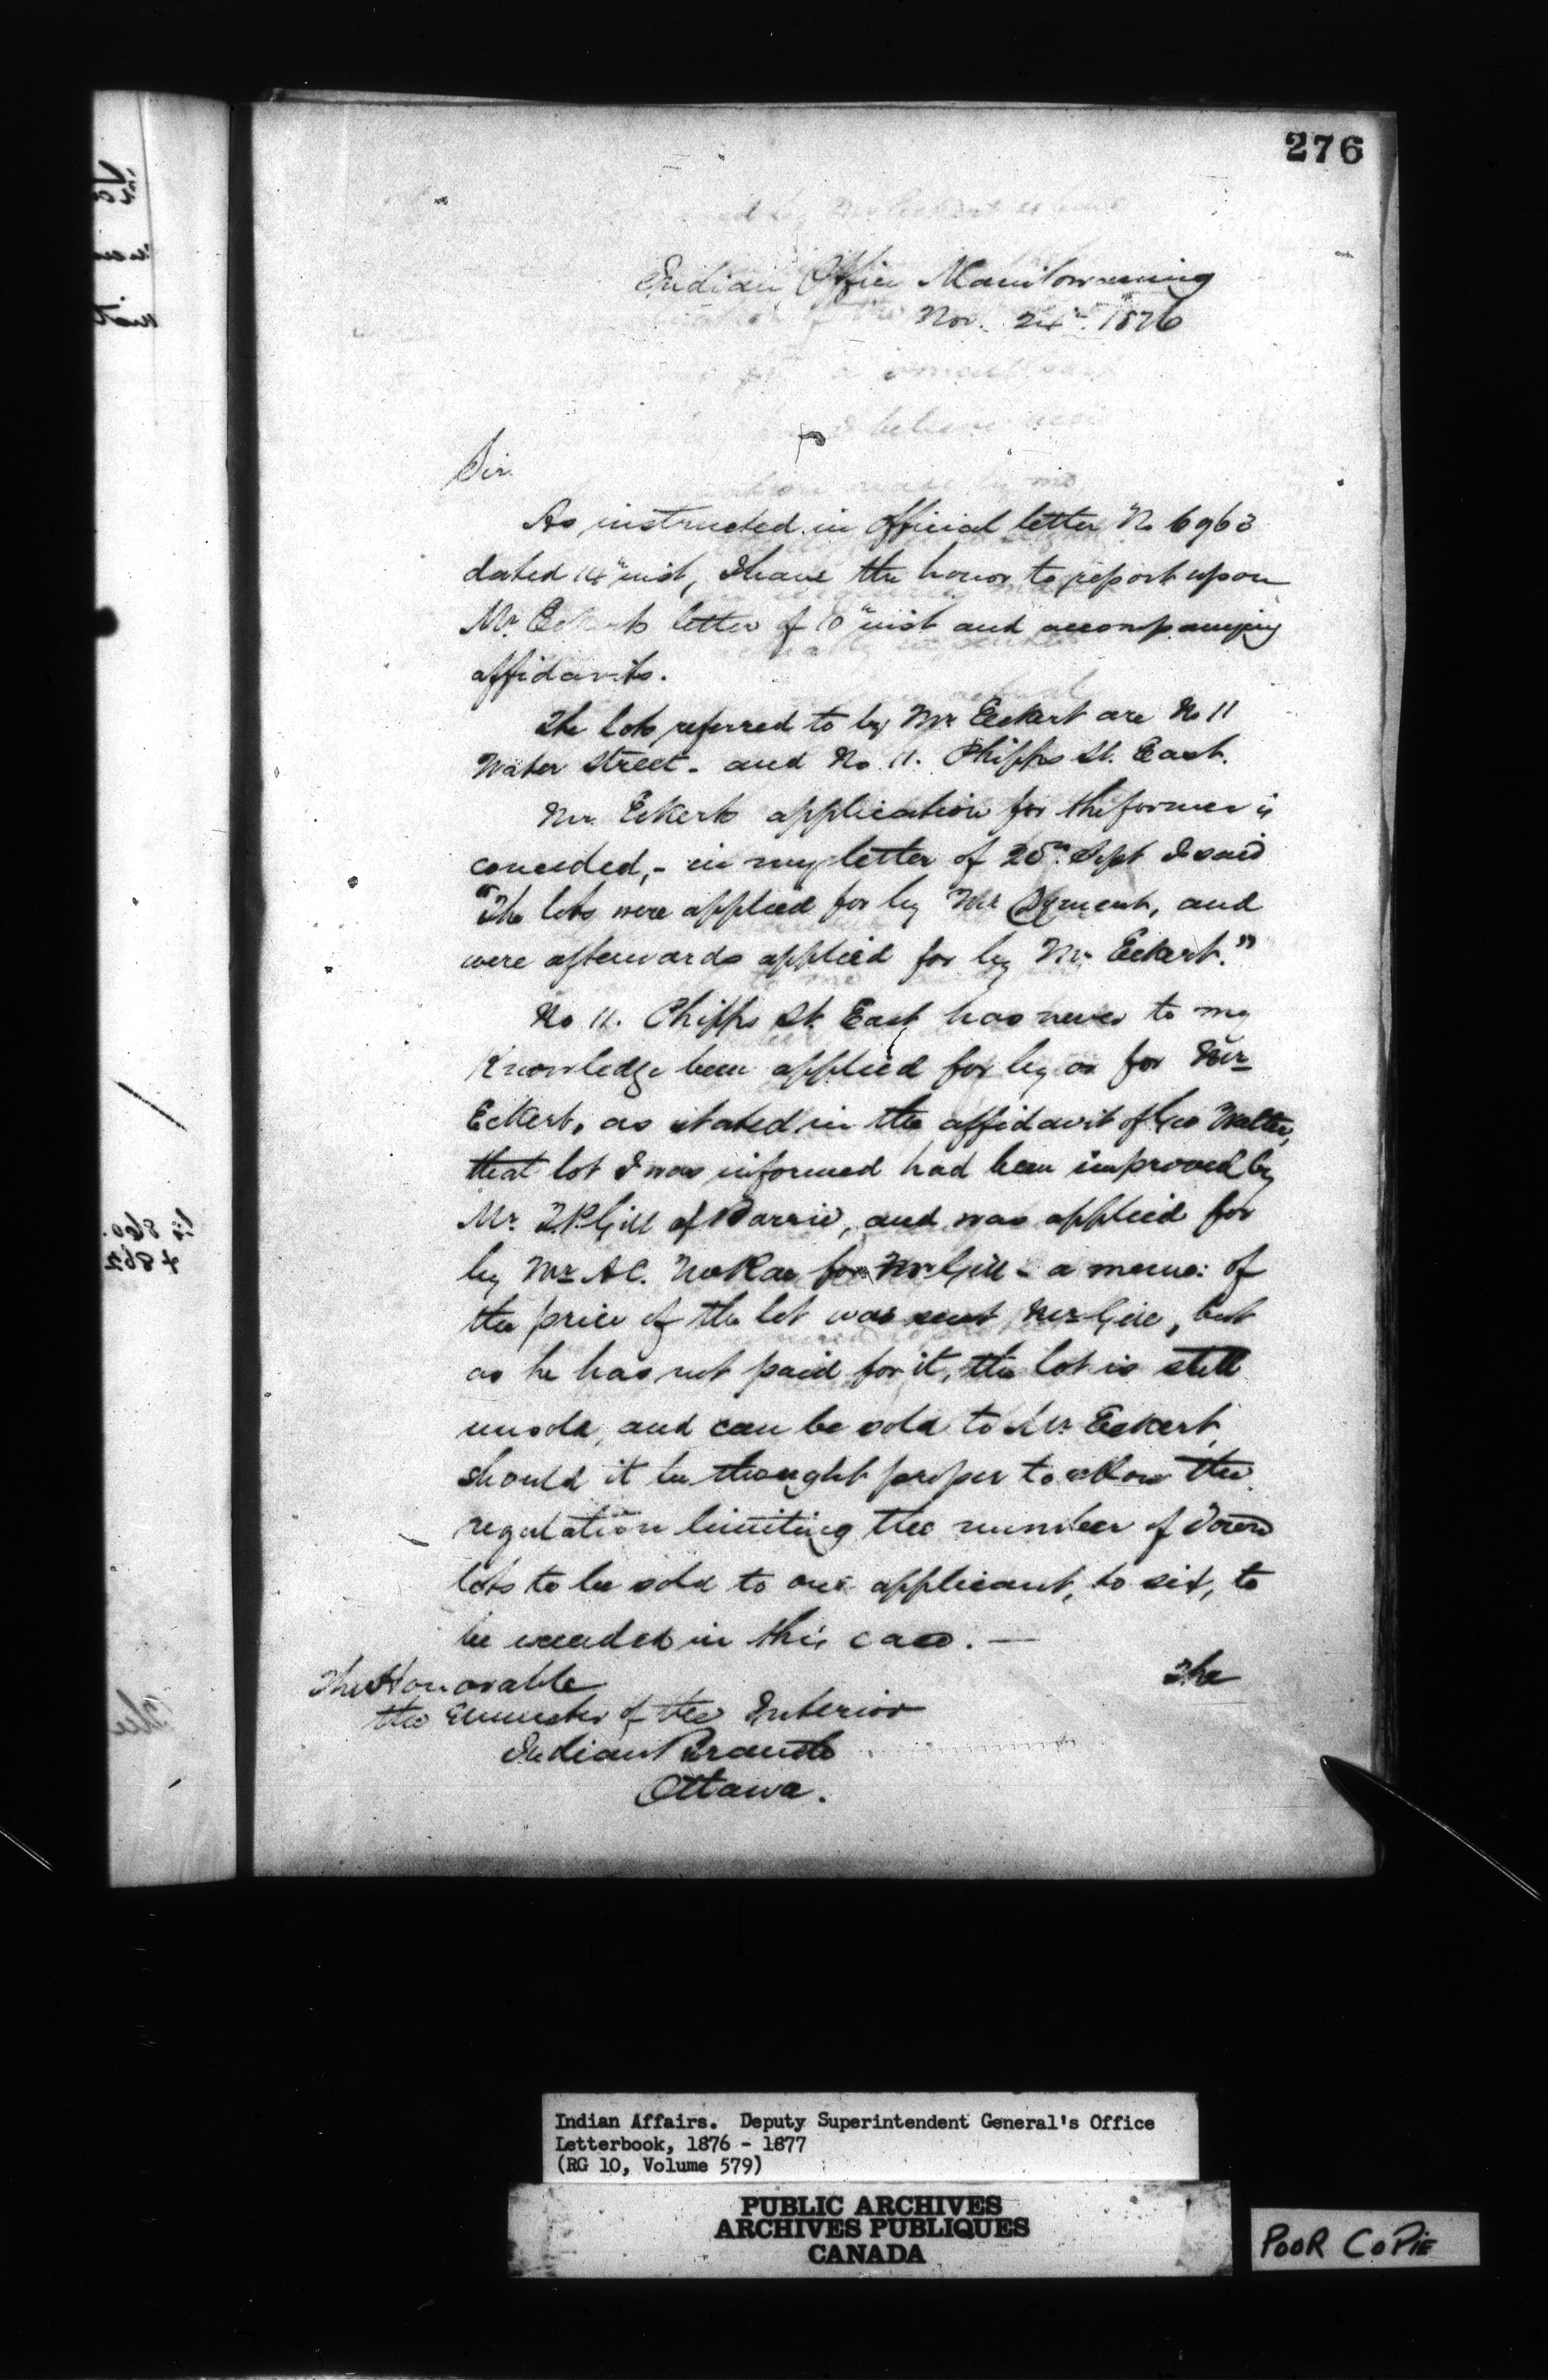 276
Indian Office Manitowaning
Nov. 24th 1876
Sir
As instructed in official letter No 6963
dated 14th inst, I have the honor to report upon
Mr. letter of inst and accompanying
affidavits.
The lots referred to by Mr Eckert are No 11
Water Street - and No 11. Phipps St. East.
Mr. Eckerts application for the former is
conceded, - in my letter of 25th Sept I said
"The lots were applied for by Mr and
were afterwards applied for by Mr Eckert."
No 11. Phipps St. East has never to my
knowledge been applied for by or for Mr
Eckert, as stated in the affidavit of Geo Walter,
that lot I was informed had been improved by
Mr. Gill of Barrie, and was applied for
by Mr A.C. McRae for Mr Gill - a memo: of
the price of the lot was sent Mr Gill, but
as he has not paid for it, the lot is still
unsold, and can be sold to Mr Eckert,
should it be thought proper to allow the
regulation limiting the number of Town
lots to be sold to one applicant, to six, to
be in this case. —
The
The Honorable
the Minister of the Interior
Indian Branch
Ottawa.
Indian Affairs. Deputy Superintendent General's Office
Letterbook, 1876 - 1877
(RG 10, Volume 579)
PUBLIC ARCHIVES
ARCHIVES PUBLIQUES
CANADA
POOR COPIE